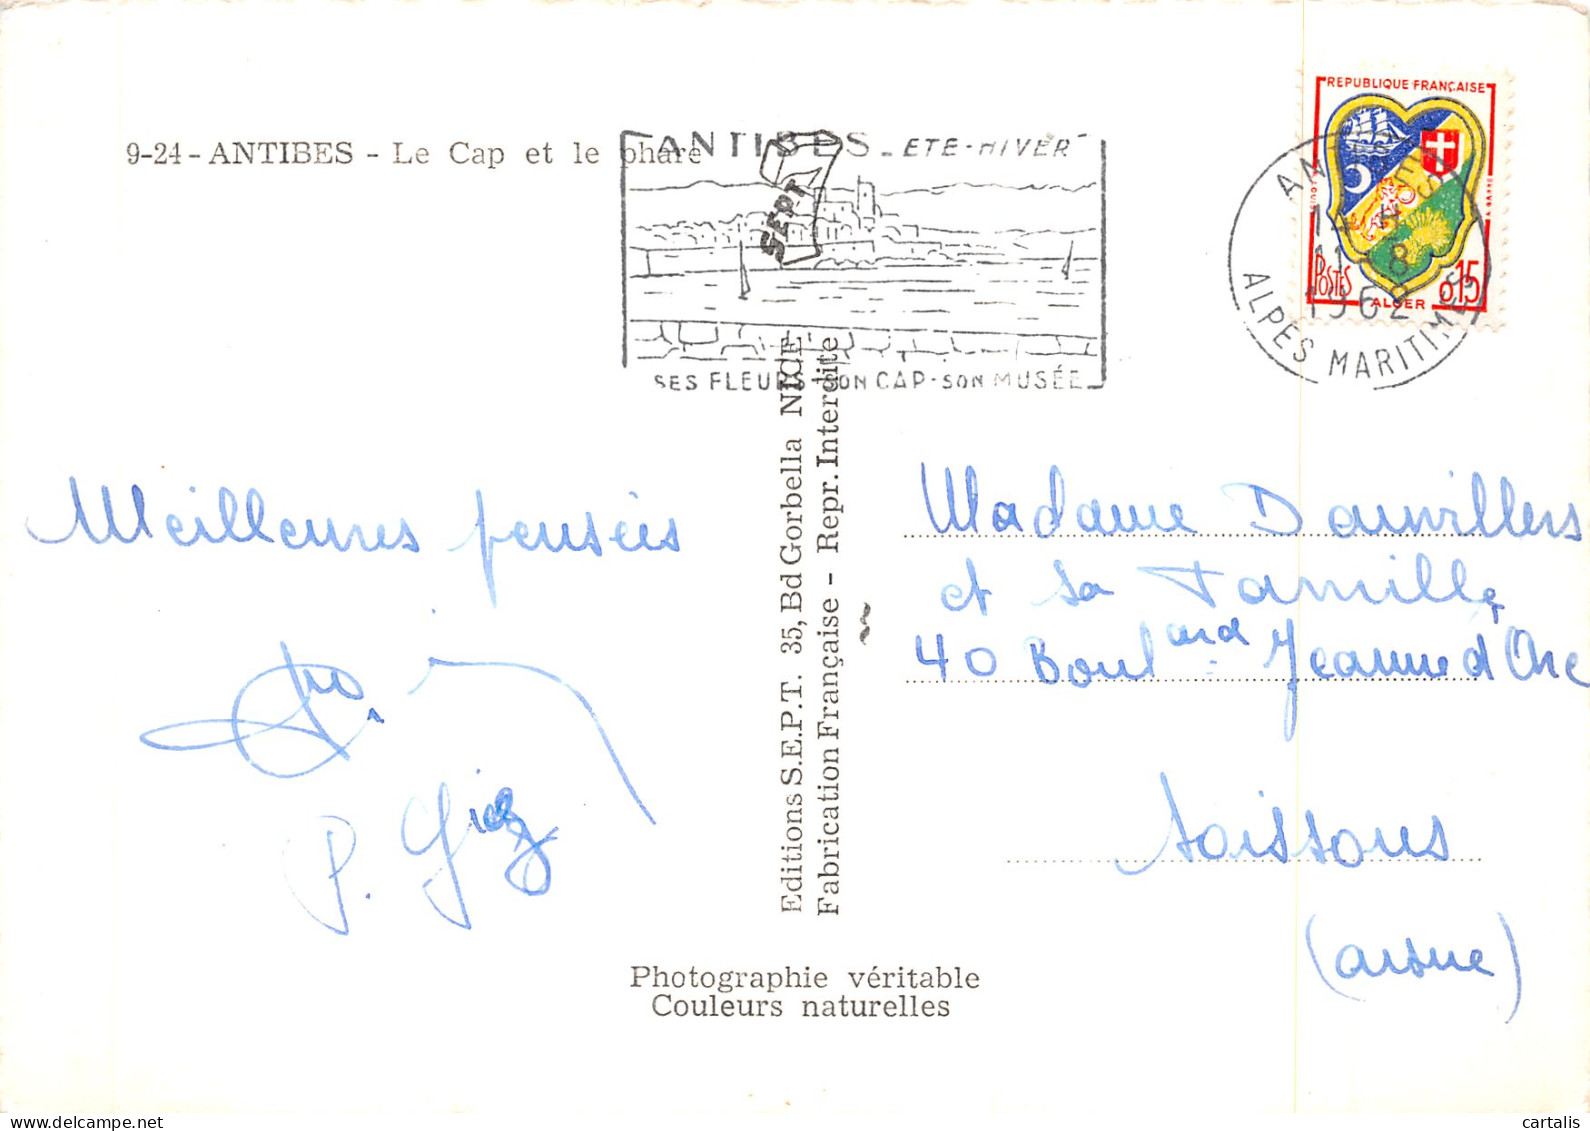 9-24 - ANTIBES - Le Cap et le phare
ANTIBES - ETE-HIVER
SES FLEURS SON CAP - SON MUSÉE
REPUBLIQUE FRANÇAISE
POSTES
ALGER
0,15
ALPES MARITIMES
1962
Meilleures pensées
P.
Editions S.E.P.T. 35, Bd Gorbella NICE
Fabrication Française - Repr. Interdite
Madame Dauvillers
et sa Famille
40 Boulard Jeanne d'Arc
Soissons
(aisne)
Photographie véritable
Couleurs naturelles
delcampe.net
cartalis